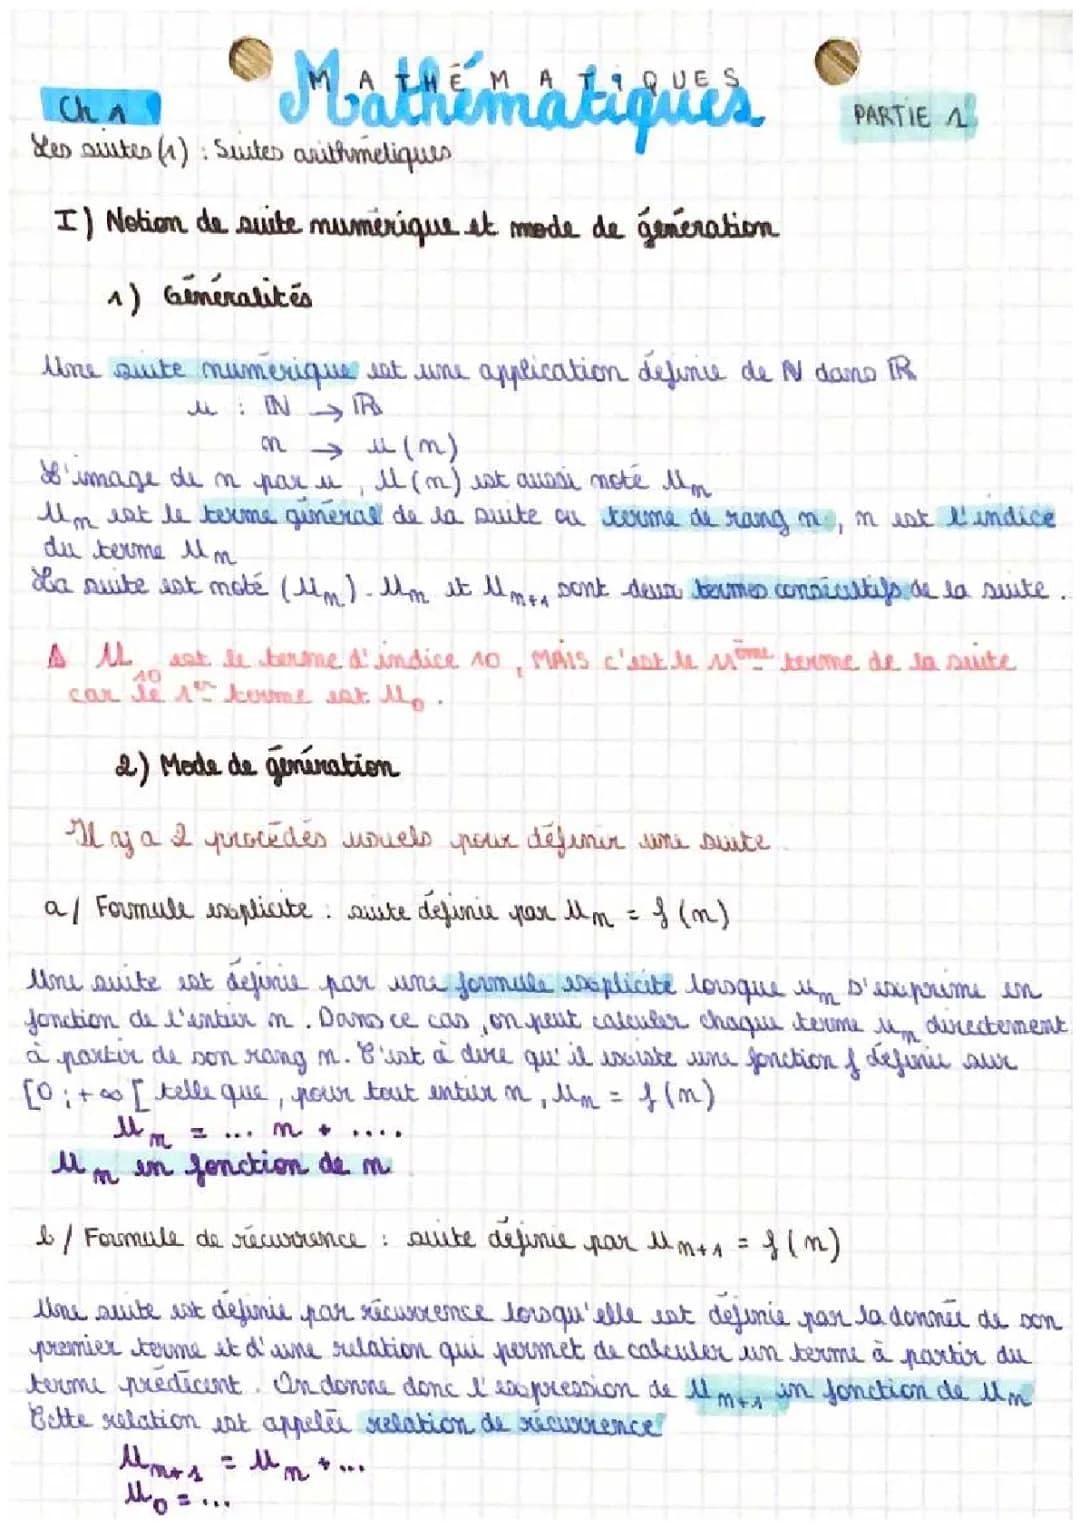 MATHÉMATIQUES
Mathématiques
Ch 1
PARTIE 1
Les suites (1) : Suites arithmétiques
I) Notion de suite numérique et mode de génération
1) Généralités
Une suite numérique est une application définie de N dans ℝ
u : ℕ → ℝ
n → u(n)
L'image de n par u, U(n) est aussi noté Un
Un est le terme général de la suite ou terme de rang n, n est l'indice
du terme Un
La suite est noté (Un). Un et Un+1 sont deux termes consécutifs de la suite.
⚠ U10 est le terme d'indice 10, MAIS c'est le 11ème terme de la suite
car le 1er terme est U0.
2) Mode de génération
Il y a 2 procédés usuels pour définir une suite.
a/ Formule explicite : suite définie par Un = f(n)
Une suite est définie par une formule explicite lorsque un s'exprime en
fonction de l'entier n. Dans ce cas, on peut calculer chaque terme un directement
à partir de son rang n. C'est à dire qu'il existe une fonction f définie sur
[0;+∞[ telle que, pour tout entier n, Un = f(n)
Un = ... n + ....
Un en fonction de n
b/ Formule de récurrence : suite définie par Un+1 = f(n)
Une suite est définie par récurrence lorsqu'elle est définie par la donnée de son
premier terme et d'une relation qui permet de calculer un terme à partir du
terme précédent. On donne donc l'expression de Un+1 en fonction de Un
Cette relation est appelée relation de récurrence
Un+1 = Un + ...
U0 = ...